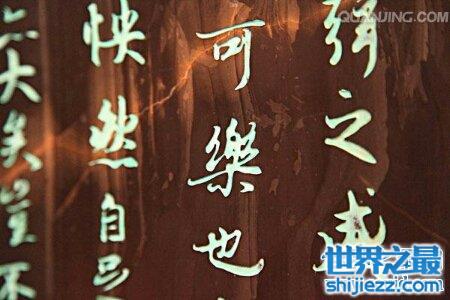 QUANJING.COM
之盛
可樂也
怏然自足
亦大矣豈不
世界之最
shijiezz.com